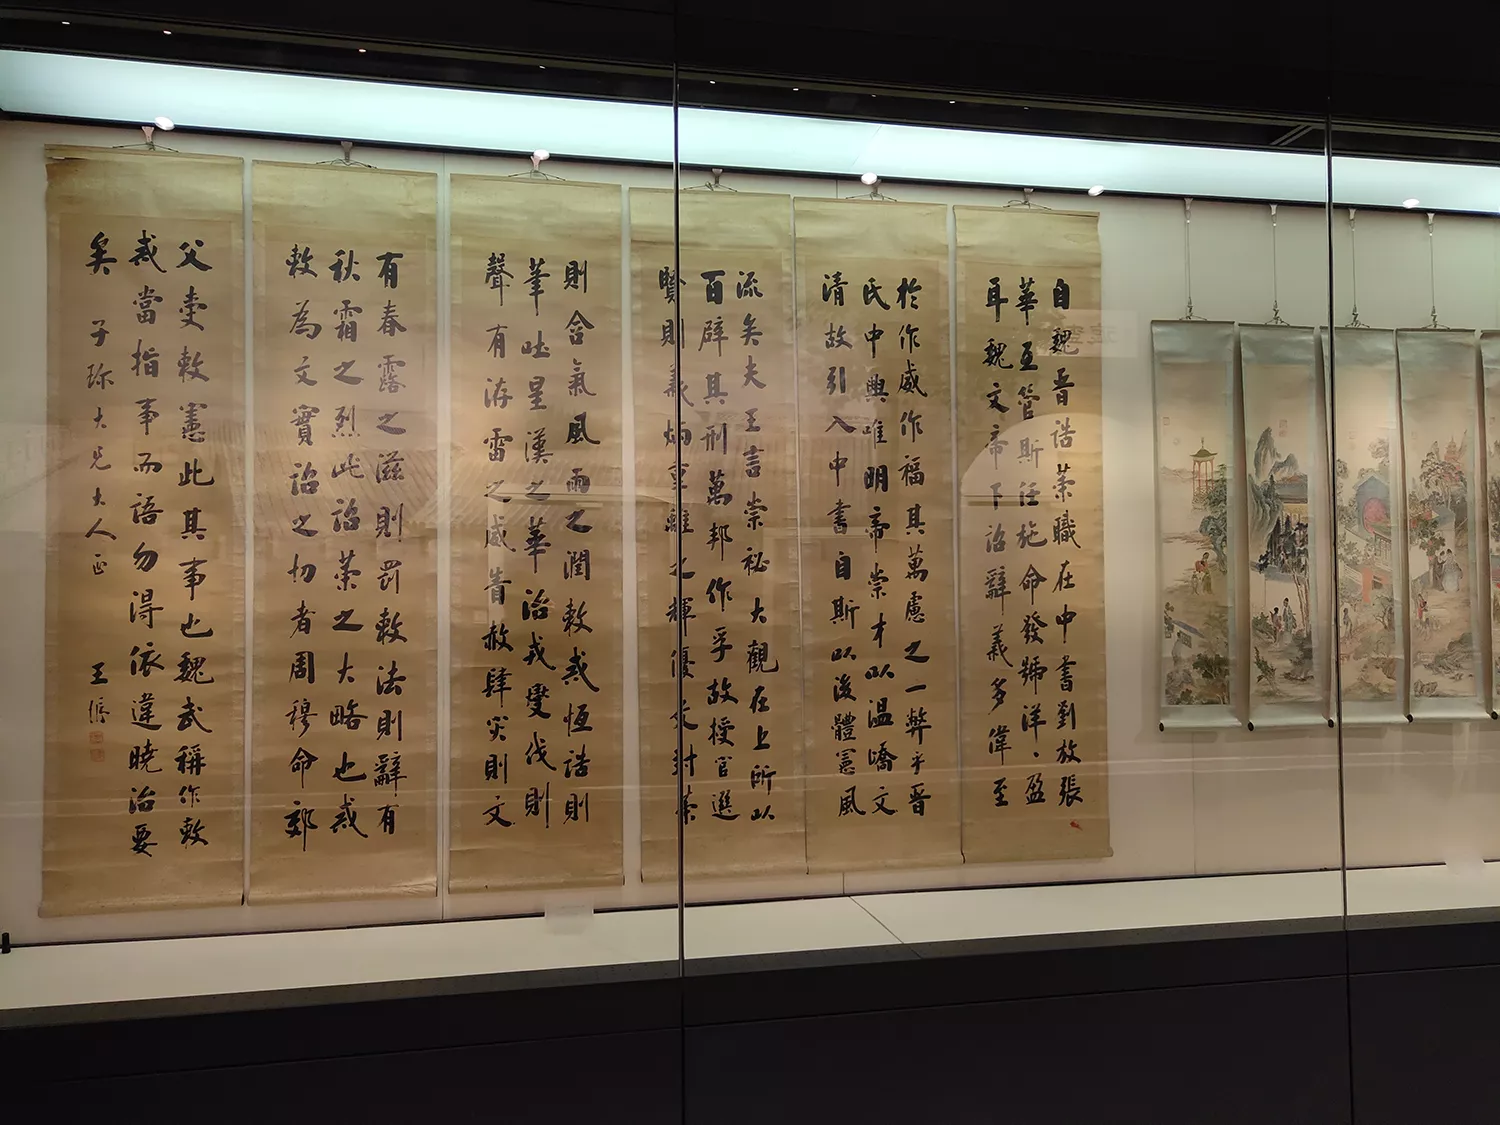 自魏晉誥策職在中書劉放張
華互管斯任施命發號洋〻盈
耳魏文帝下詔辭義多偉至
於作威作福其萬慮之一弊乎晉
氏中興唯明帝崇才以溫嶠文
清故引入中書自斯以後體憲風
流矣夫王言崇祕大觀在上所以
百辟其刑萬邦作孚故授官選
賢則義炳重離之輝優文封策
則含氣風雨之潤敕戒恆誥則
筆吐星漢之華治戎燮伐則
聲有洊雷之威眚赦肆災則文
有春露之滋則罰敕法則辭有
秋霜之烈此詔策之大略也戒
敕為文實詔之切者周穆命郊
父受敕憲此其事也魏武稱作敕
戒當指事而語勿得依違曉治要
矣 子珍大兄大人正 王